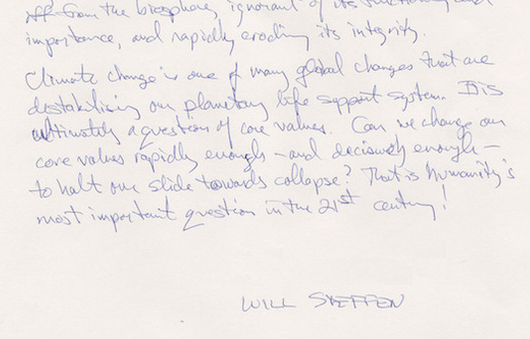 from the biosphere, ignorant of its functioning and
importance, and rapidly eroding its integrity.
Climate change is one of many global changes that are
destabilising our planetary life support system. It is
ultimately a question of core values. Can we change our
core values rapidly enough – and decisively enough –
to halt our slide towards collapse? That is humanity's
most important question in the 21st century!
WILL STEFFEN